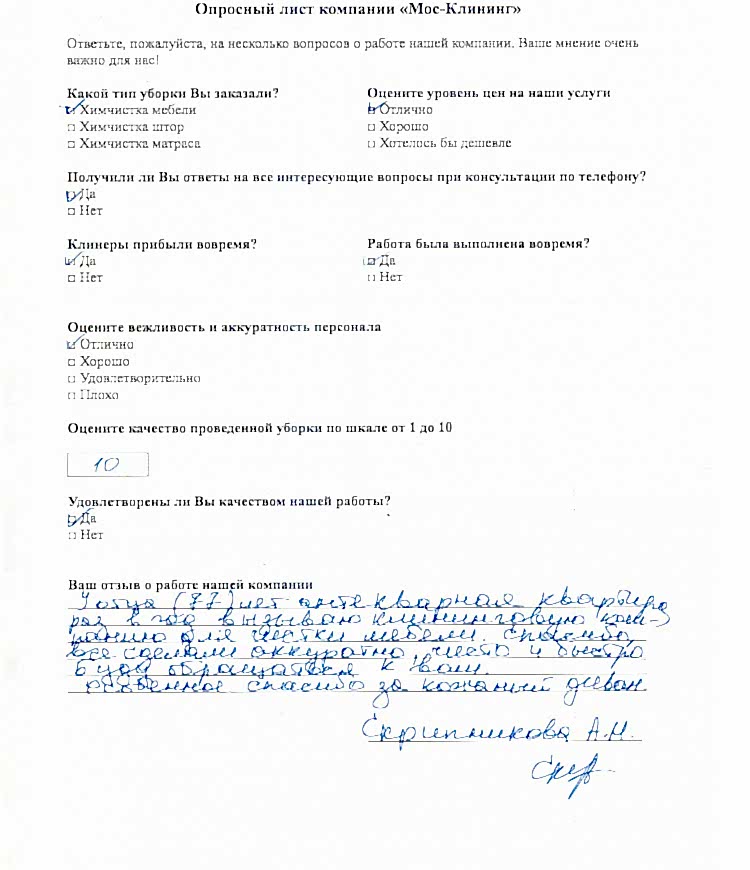 Опросный лист компании «Мос-Клининг»
Ответьте, пожалуйста, на несколько вопросов о работе нашей компании. Ваше мнение очень
важно для нас!
Какой тип уборки Вы заказали?
Химчистка мебели
Химчистка штор
Химчистка матраса
Оцените уровень цен на наши услуги
Отлично
Хорошо
Хотелось бы дешевле
Получили ли Вы ответы на все интересующие вопросы при консультации по телефону?
Да
Нет
Клинеры прибыли вовремя?
Да
Нет
Работа была выполнена вовремя?
Да
Нет
Оцените вежливость и аккуратность персонала
Отлично
Хорошо
Удовлетворительно
Плохо
Оцените качество проведенной уборки по шкале от 1 до 10
10
Удовлетворены ли Вы качеством нашей работы?
Да
Нет
Ваш отзыв о работе нашей компании
У отца (77) лет антекварная квартира
раз в год вызываю клининговую ком-
панию для чистки мебели. Спасибо,
все сделали аккуратно, чисто и быстро
буду обращаться к вам.
особенное спасибо за кожаный диван
Скрипникова А.Н.